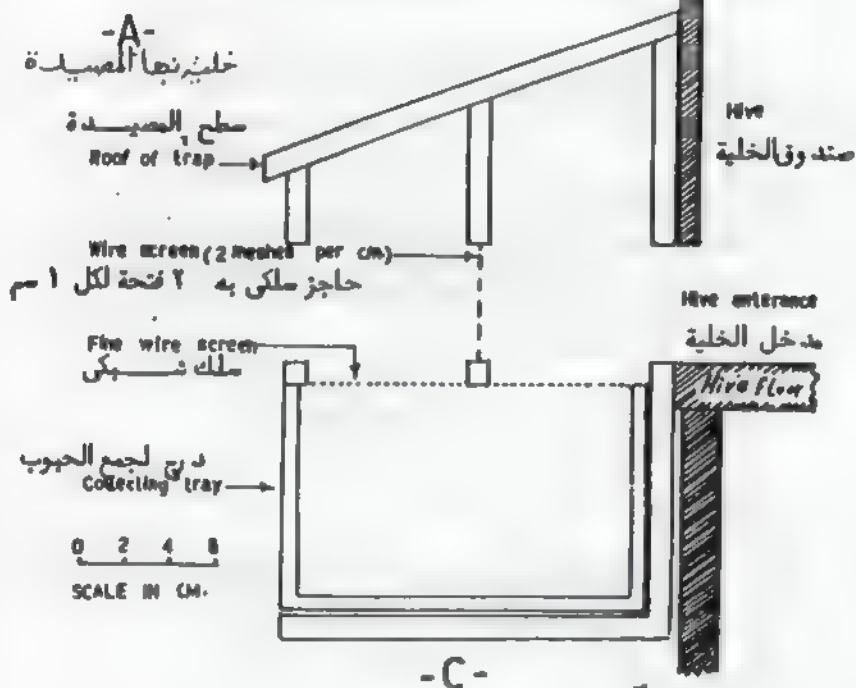 -A-
خلية بها المصيدة
سطح المصيدة
Roof of trap
Hive
صندوق الخلية
Wire screen (2 meshes per cm)
حاجز سلكى به ٢ فتحة لكل ١ سم
Hive enterance
مدخل الخلية
Hive Floor
Fine wire screen
سلك شبكى
درج لجمع الحبوب
Collecting tray
0 2 4 8
SCALE IN CM.
-C-